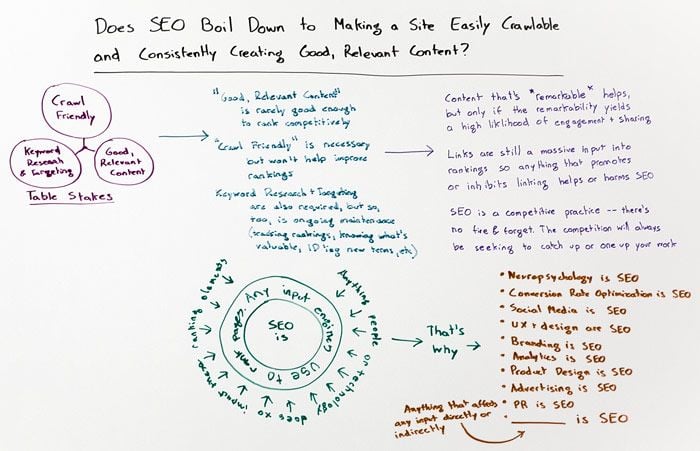 Does SEO Boil Down to Making a Site Easily Crawlable
and Consistently Creating Good, Relevant Content?
Crawl
Friendly
Keyword
Research
& Targeting
Good,
Relevant
Content
Table Stakes
"Good, Relevant Content"
is rarely good enough
to rank competitively
"Crawl Friendly" is necessary
but won't help improve
rankings
Keyword Research + Targeting
are also required, but so,
too, is ongoing maintenance
(tracking rankings, knowing what's
valuable, ID'ing new terms, etc)
Content that's *remarkable* helps,
but only if the remarkability yields
a high liklihood of engagement + sharing
Links are still a massive input into
rankings so anything that promotes
or inhibits linking helps or harms SEO
SEO is a competitive practice -- there's
no fire & forget. The competition will always
be seeking to catch up or one up your work
SEO
is
Any input engines
use to rank pages.
Anything people
or technology
does to
impact these
ranking elements
That's
why
• Neuropsychology is SEO
• Conversion Rate Optimization is SEO
• Social Media is SEO
• UX + design are SEO
• Branding is SEO
• Analytics is SEO
• Product Design is SEO
• Advertising is SEO
• PR is SEO
• ________ is SEO
Anything that affects
any input directly or
indirectly